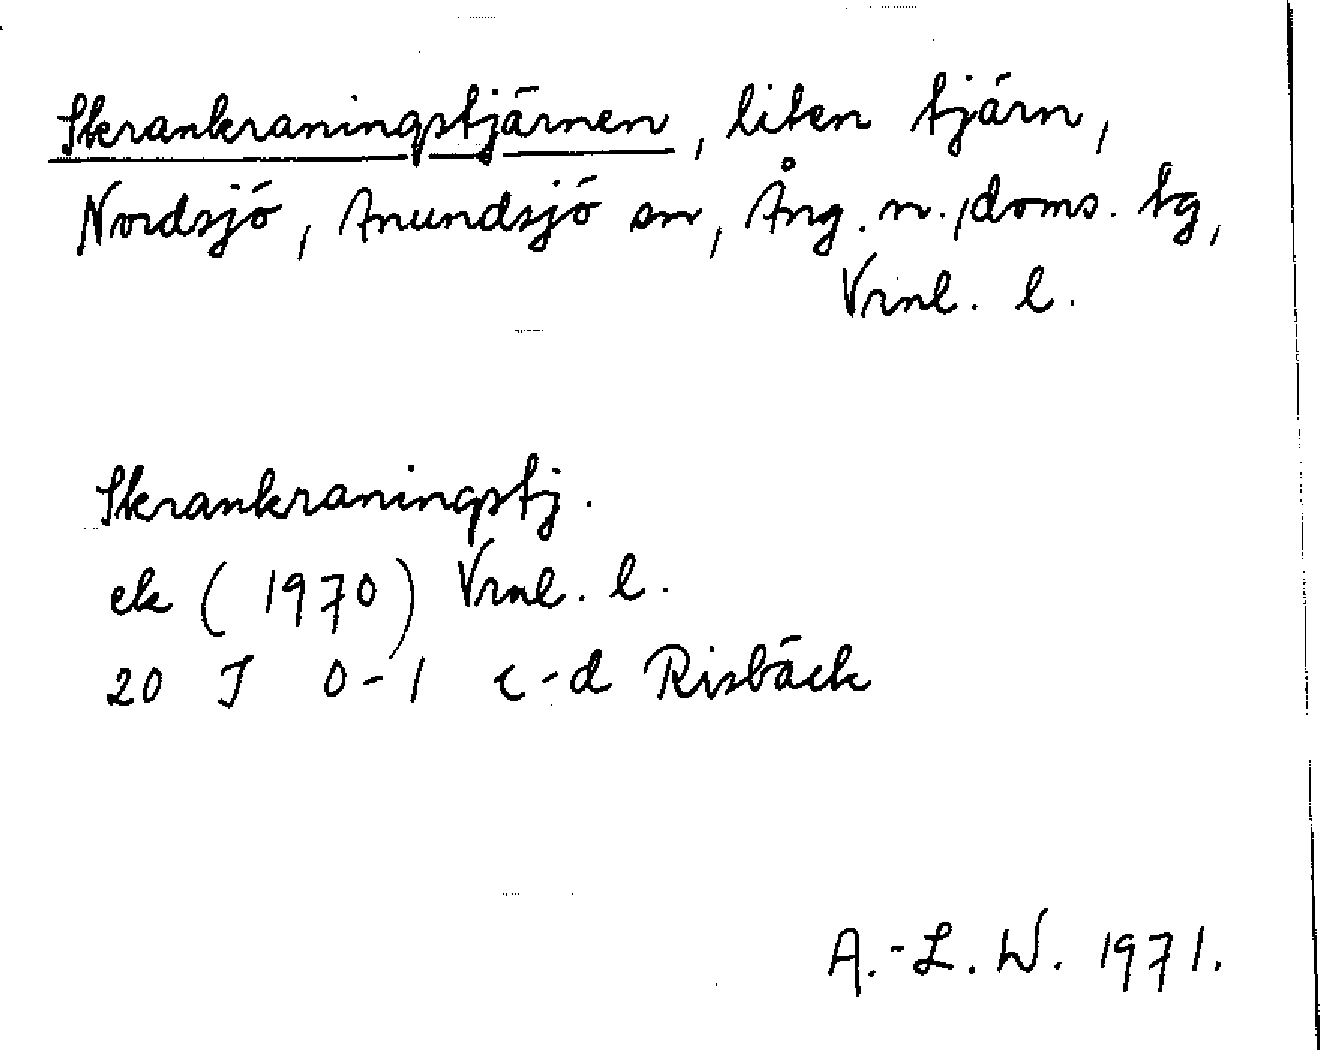 Skrankraningstjärnen, liten tjärn,
Nordsjö, Anundsjö sn, Ång. n., doms. tg,
Vrnl. l.
Skrankraningstj.
ek (1970) Vrnl. l.
20 J 0-1 c-d Risbäck
A.-L. W. 1971.